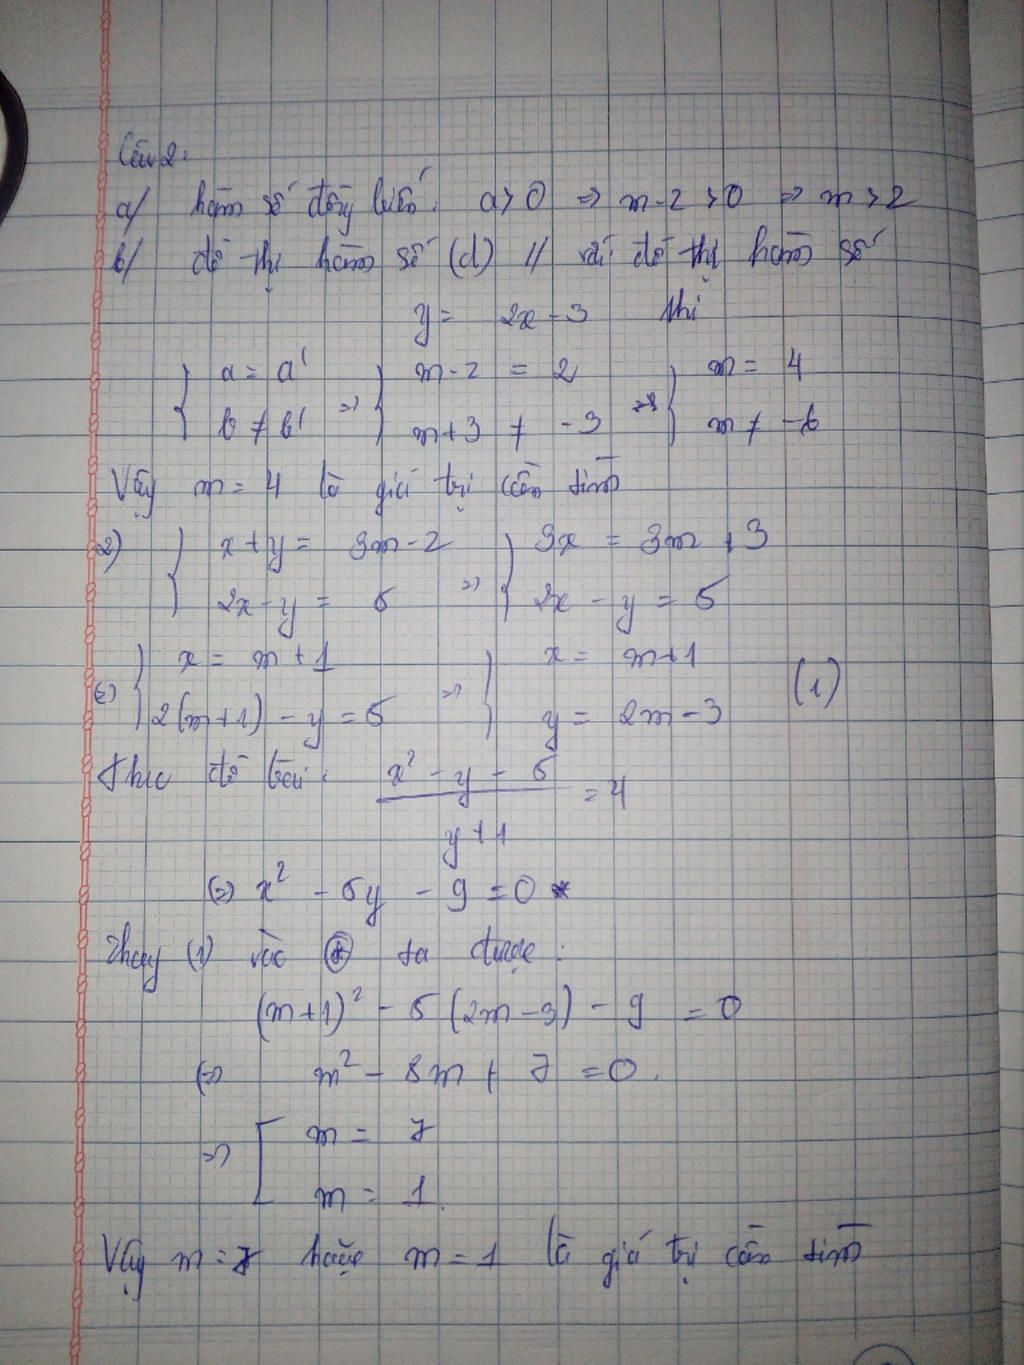 Câu 2:
a/ hàm số đồng biến: a > 0 => m-2 > 0 => m > 2
b/ đồ thị hàm số (d) // với đồ thị hàm số
y = 2x - 3 thì
{ a = a' => { m-2 = 2 => { m = 4
b ≠ b' m+3 ≠ -3 m ≠ -6
Vậy m = 4 là giá trị cần tìm
2) { x + y = 3m - 2 => { 3x = 3m + 3
2x - y = 5 2x - y = 5
(=) { x = m + 1 => { x = m+1 (1)
2(m+1) - y = 5 y = 2m - 3
Theo đề bài: x² - y - 5 / y + 1 = 4
(=) x² - 5y - 9 = 0 *
Thay (1) vào (*) ta được:
(m+1)² - 5 (2m-3) - 9 = 0
(=) m² - 8m + 7 = 0.
=> [ m = 7
m = 1.
Vậy m = 7 hoặc m = 1 là giá trị cần tìm